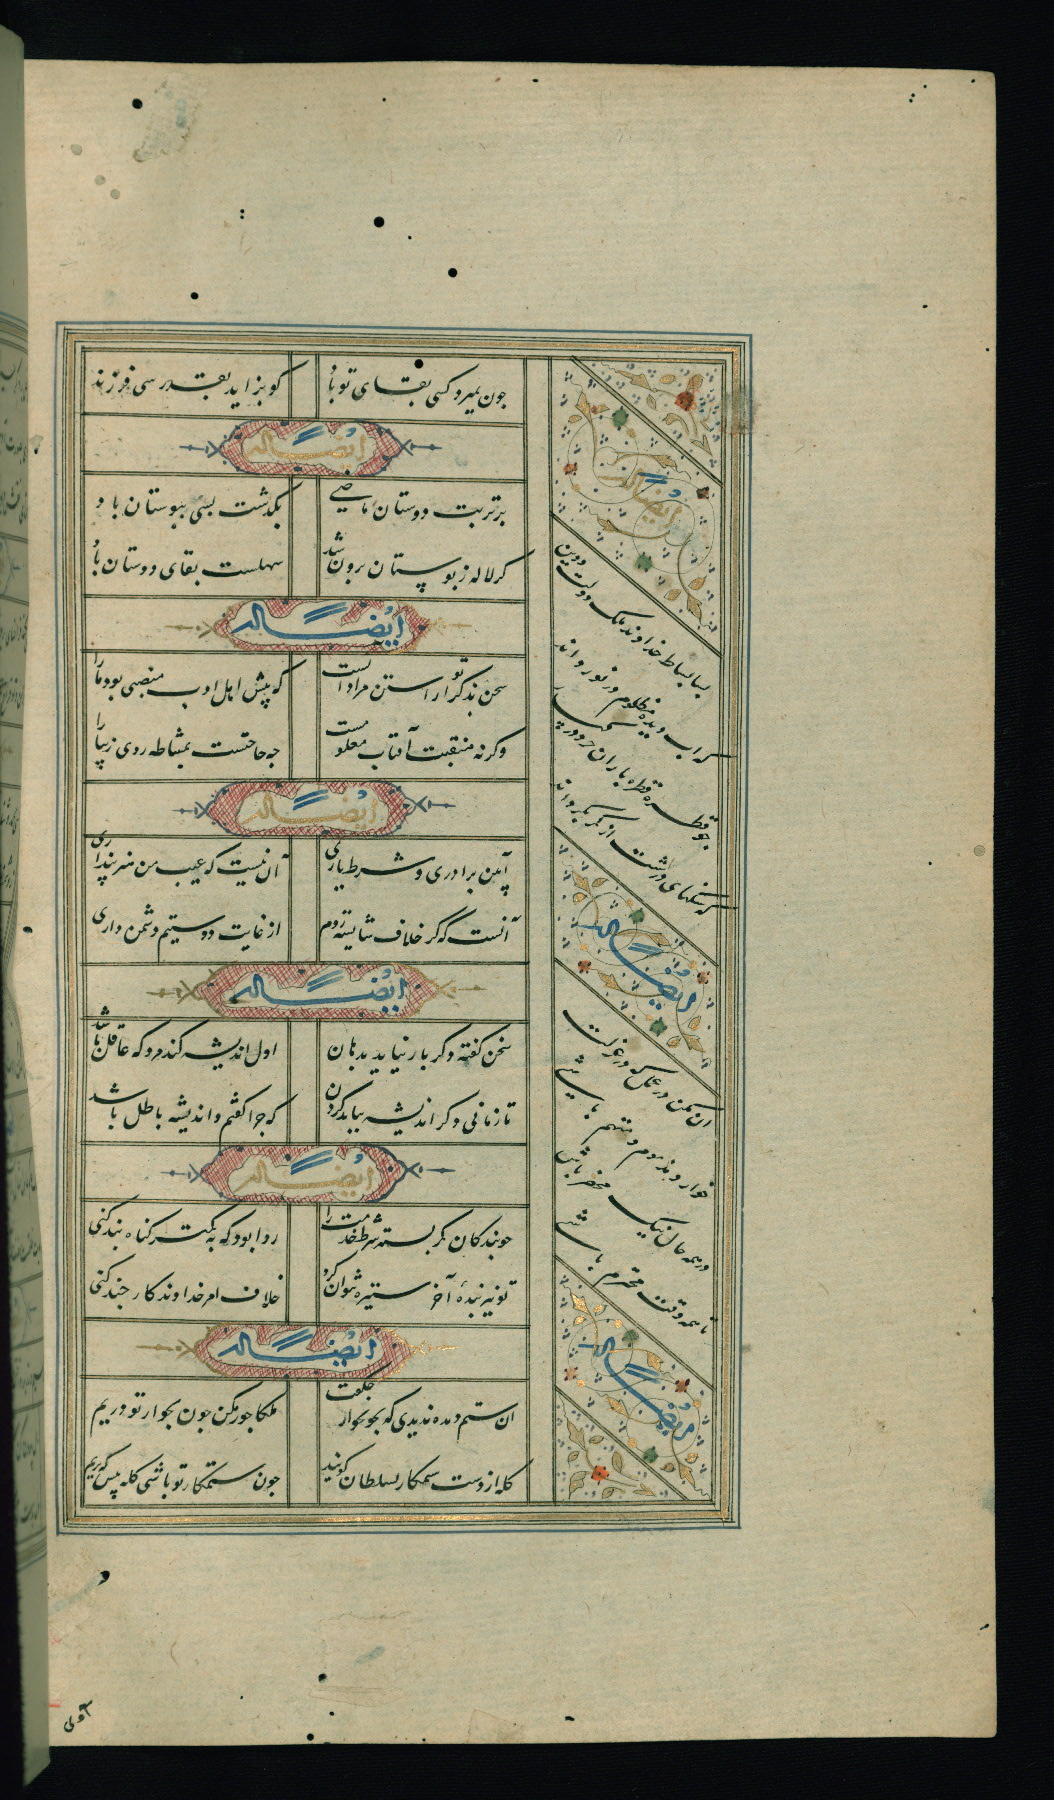 جون بمیرد کسی بقای تو باد
کو بزاید بقدرسی فرزند
ایضاً له
بر تربت دوستان ماضی
بگذشت بسی ببوستان باد
کر لاله ز بوستان برون شد
سهلست بقای دوستان باد
ایضاً له
سخن بذکر تو آراستن مراد آنست
که پیش اهل ادب منصبی بود ما را
وکرنه منقبت آفتاب معلومست
جه حاجتست بمشاطه روی زیبا را
ایضاً له
آیین برادری و شرط یاری
آن نیست که عیب من هنر پنداری
آنست که کر خلاف شایسته روم
از غایت دوستیم دشمن داری
ایضاً له
سخن کفته دکر باز نیاید بدهان
اول اندیشه کند مرد که عاقل باشد
تا زمانی دکر اندیشه بباید کردن
که جرا کفتم و اندیشه باطل باشد
ایضاً له
جو بندکان کمر بسته شرط خدمت را
روا بود که به کمتر کناه بند کنی
تو نیز بنده‌ٔ آخر ستیزه نتوان کرد
خلاف امر خداوندکار جند کنی
ایضاً له
ان ستم دیده ندیدی که بخونخوار جکفت
ملکا جور مکن جون بجوار تو دریم
کله از دست ستمکار بسلطان کویند
جون ستمکار تو باشی کله پیش که بریم
ایضاً له
بسا بساط خداوند ملک دولت و دین
که آب دیده مظلوم در نوردانند
جو قطره قطره باران خرد بر کهسار
که سنکهای درشت از کمر بکردانند
ایضاً له
ان مکن در عمل که در عزلت
خوار و مذموم و متهم باشی
در همه حال نیک محضر باش
تا همه وقت محترم باشی
ایضاً له